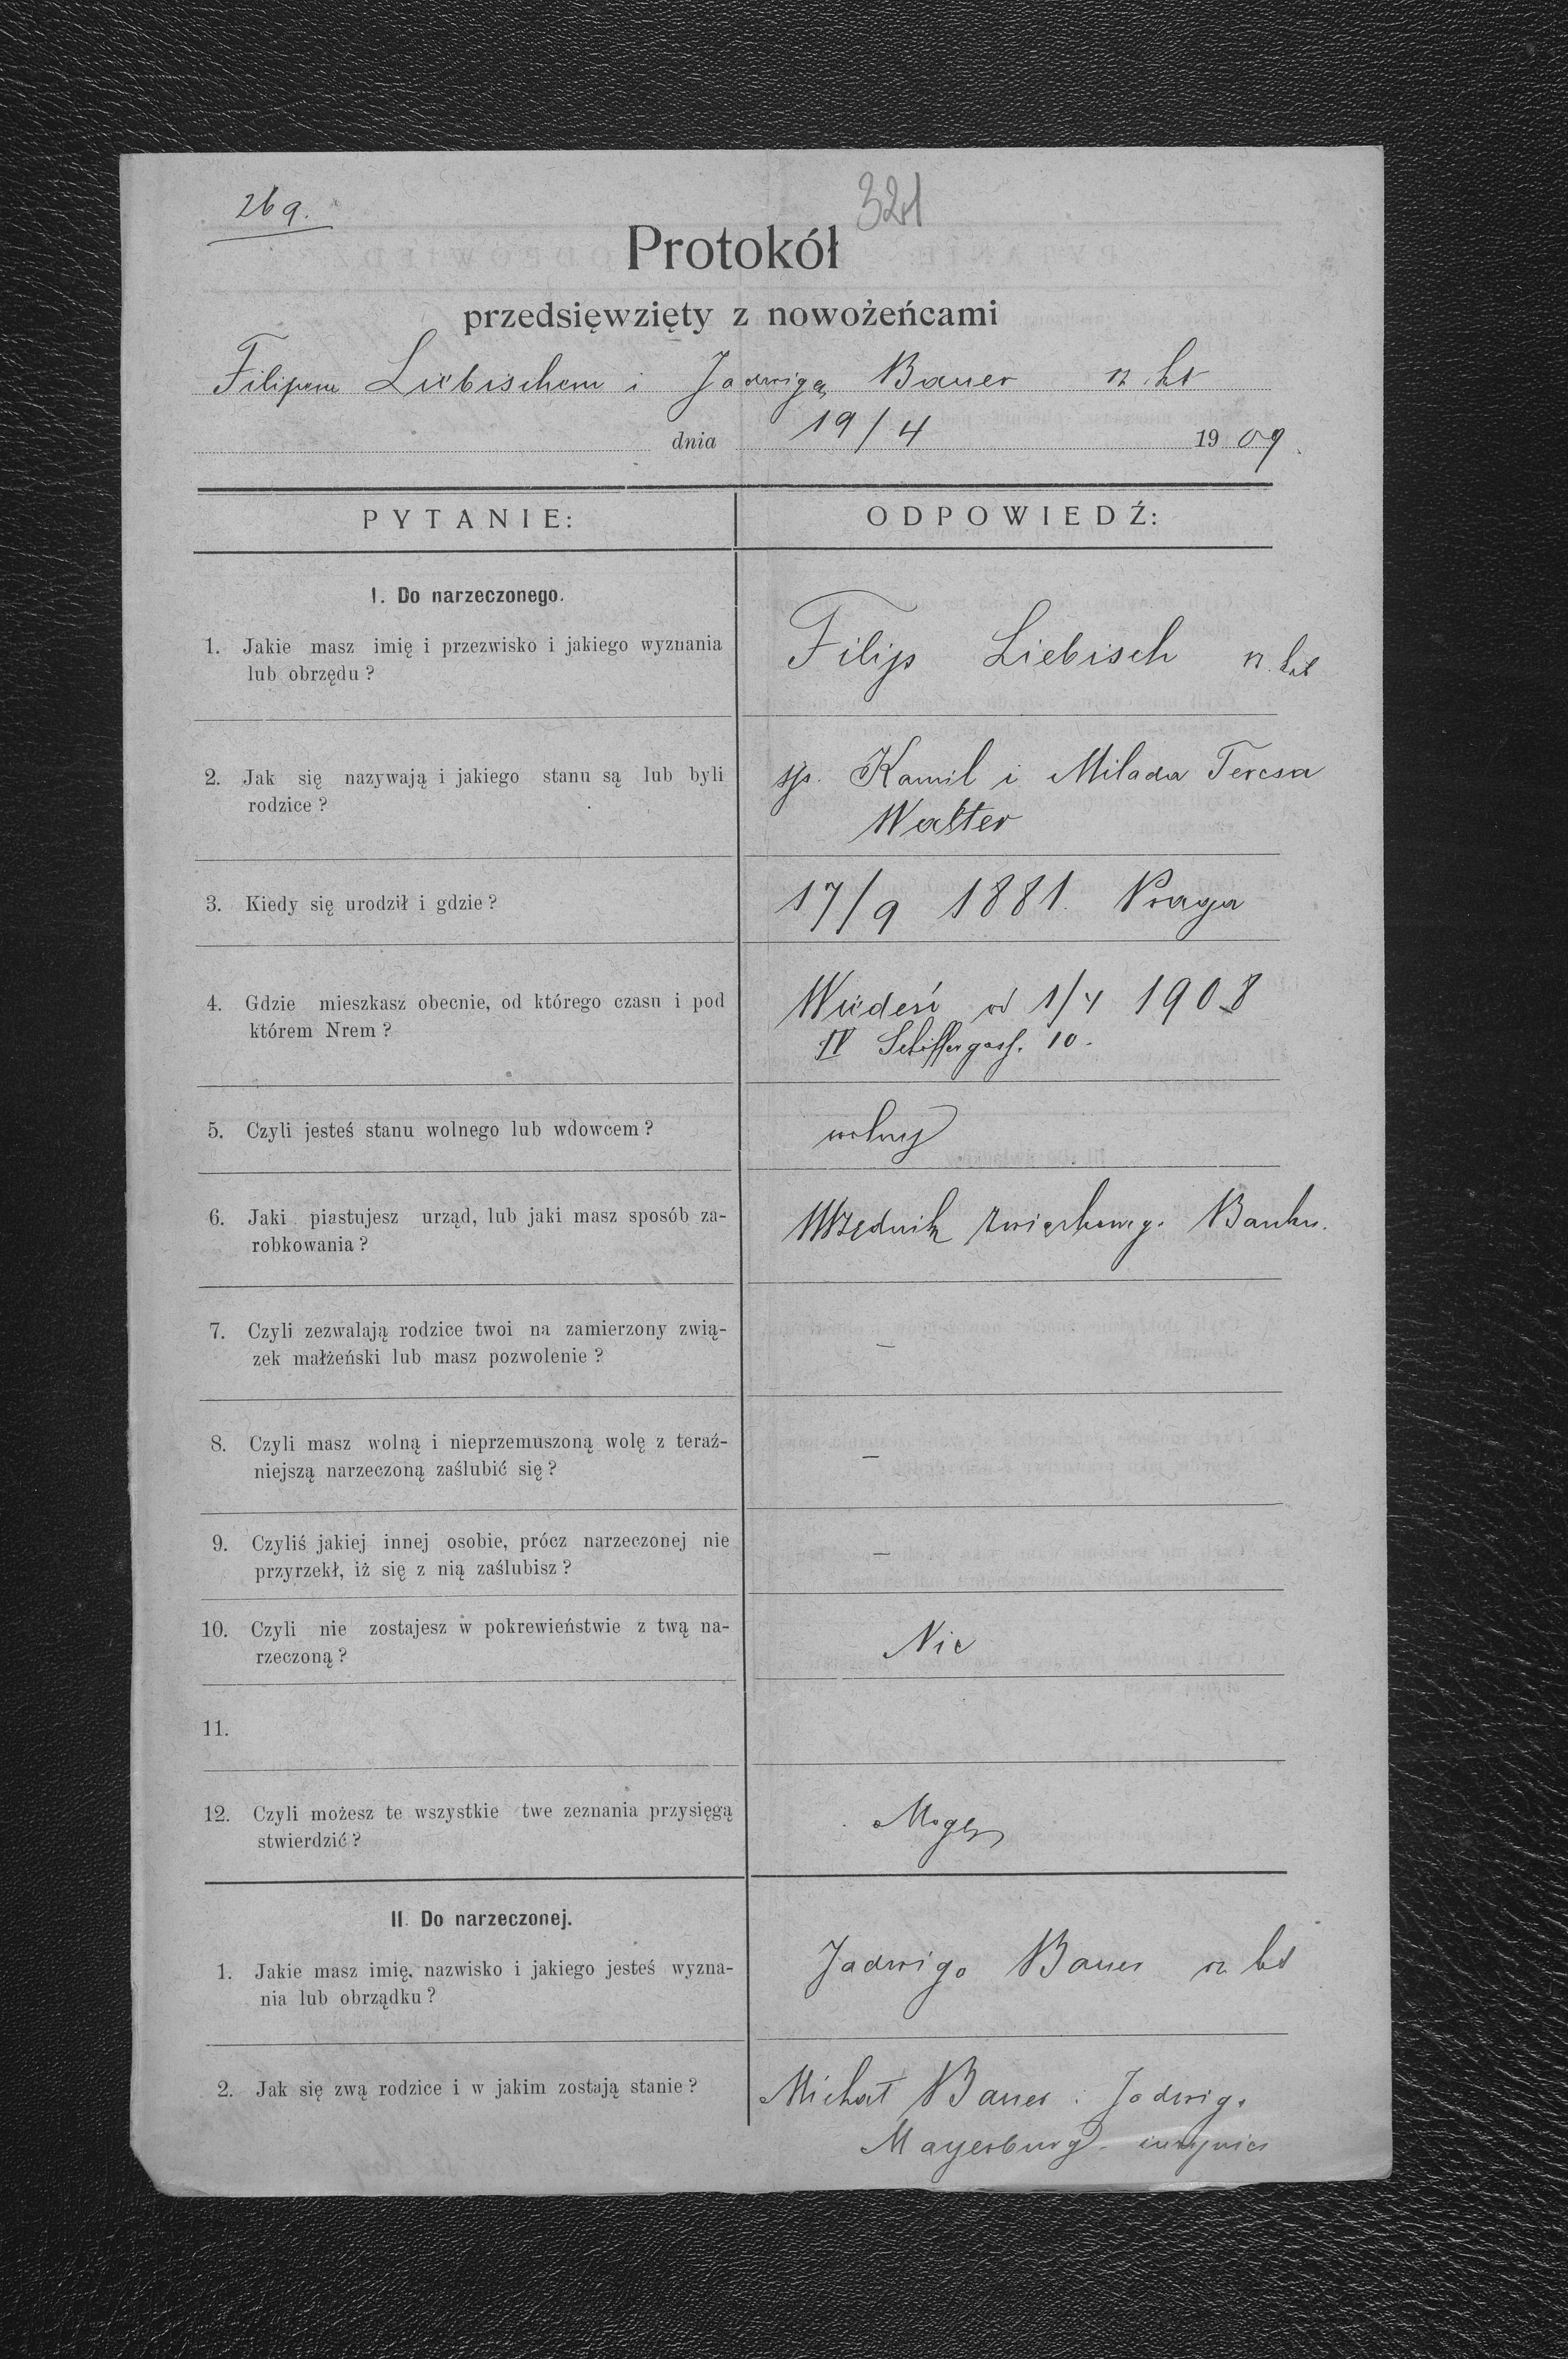 269.
321
Protokół
przedsięwzięty z nowożeńcami
Filipem Liebischem i Jadwigą Bauer rz. kt
dnia 19/4 1909.
PYTANIE:
ODPOWIEDŹ:
I. Do narzeczonego.
1. Jakie masz imię i przezwisko i jakiego wyznania
lub obrzędu?
Filip Liebisch rz. kat
2. Jak się nazywają i jakiego stanu są lub byli
rodzice?
sp. Kamil i Milada Teresa
Walter
3. Kiedy się urodził i gdzie?
17/9 1881. Praga
4. Gdzie mieszkasz obecnie, od którego czasu i pod
którem Nrem?
Wiedeń od 1/4 1908
IV Schiffergass. 10.
5. Czyli jesteś stanu wolnego lub wdowcem?
wolny
6. Jaki piastujesz urząd, lub jaki masz sposób za-
robkowania?
Urzędnik związkoweg. Banku.
7. Czyli zezwalają rodzice twoi na zamierzony zwią-
zek małżeński lub masz pozwolenie?
–
8. Czyli masz wolną i nieprzemuszoną wolę z teraź-
niejszą narzeczoną zaślubić się?
–
9. Czyliś jakiej innej osobie, prócz narzeczonej nie
przyrzekł, iż się z nią zaślubisz?
–
10. Czyli nie zostajesz w pokrewieństwie z twą na-
rzeczoną?
Nie
11.
12. Czyli możesz te wszystkie twe zeznania przysięgą
stwierdzić?
Mogę
II. Do narzeczonej.
1. Jakie masz imię, nazwisko i jakiego jesteś wyzna-
nia lub obrządku?
Jadwiga Bauer rz kt
2. Jak się zwą rodzice i w jakim zostają stanie?
Michał Bauer i Jadwiga
Mayerburg